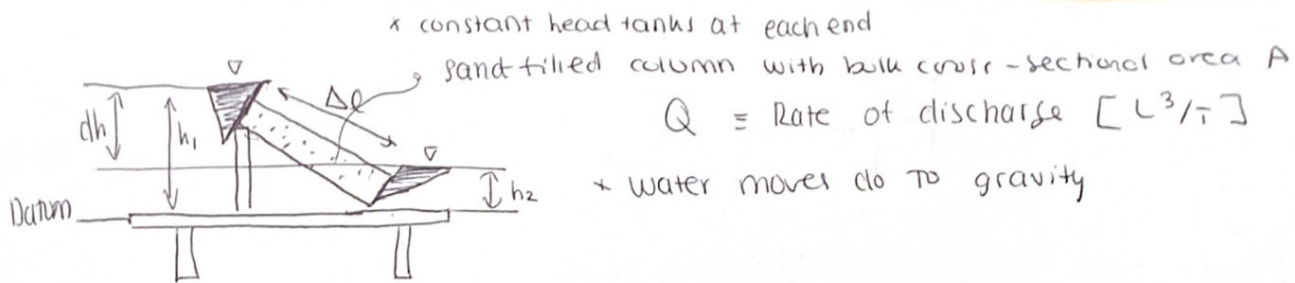 * constant head tanks at each end
sand filled column with bulk cross-sectional area A
Δl
dh
h₁
Q ≡ Rate of discharge [L³/T]
* water moves do to gravity
h₂
Datum